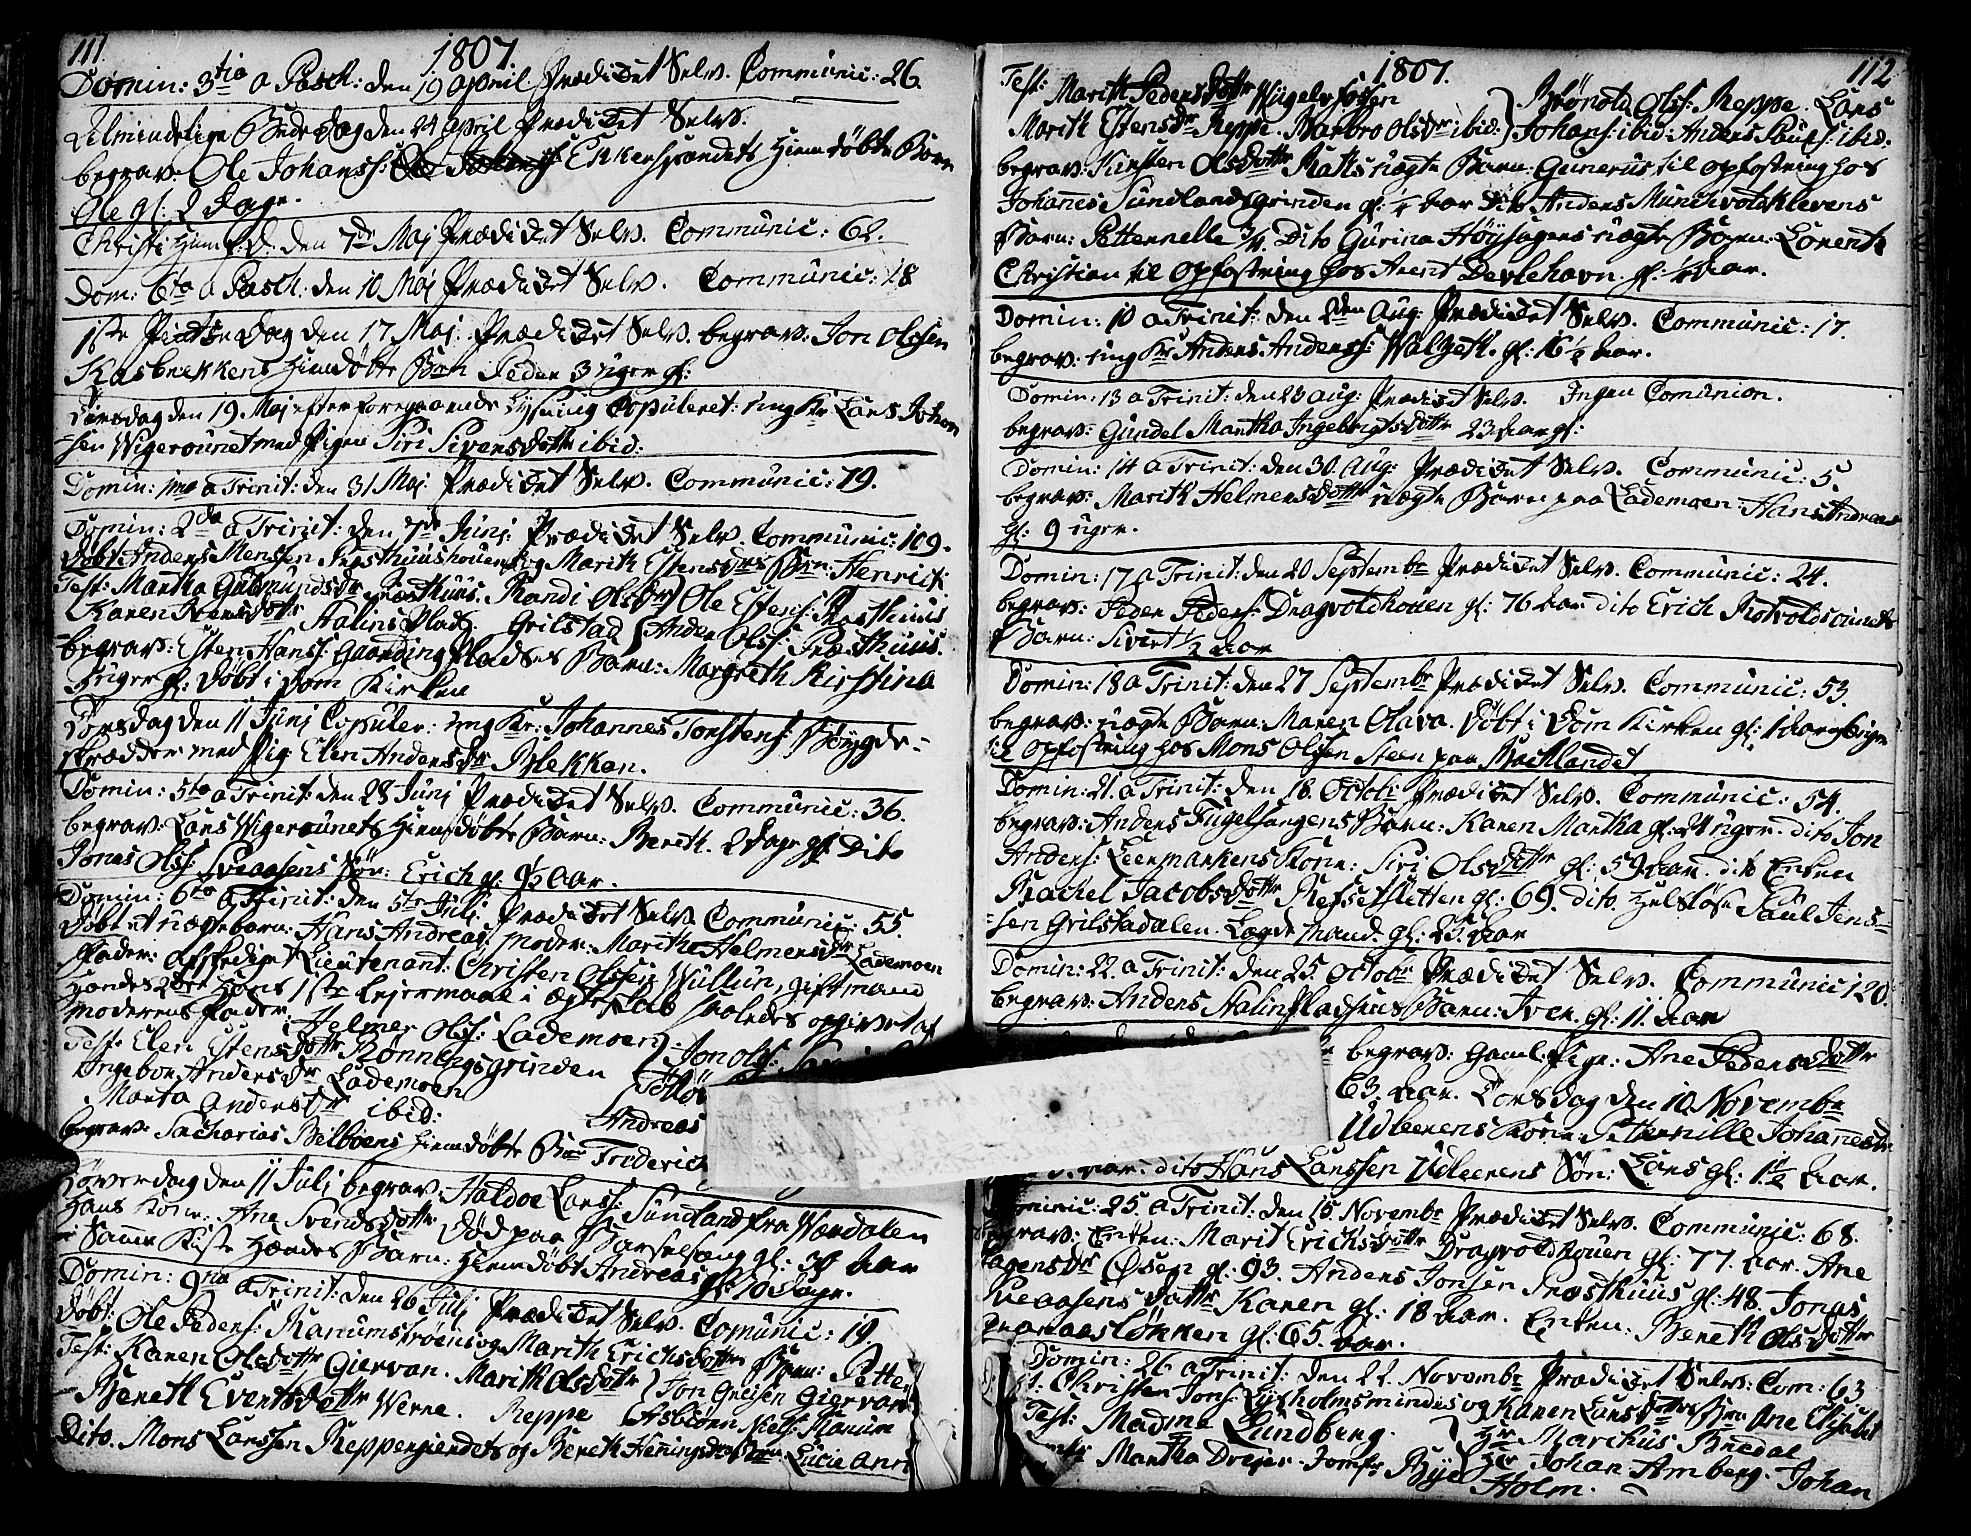 111.
1807.
Domin: 3tia a Pasch: den 19 April Prædicket Selv. Communic: 26.
Almindelige Bededag den 24 April Prædicket Selv.
begrav: Ole Johanss: Ekkersp­ændets Hiemdøbte Barn
Ole gl: 2 Dage.
Christi Himf: D: den 7de Maj Prædicket Selv. Communic: 62.
Dom: 6ta a Pasch: den 10 Maj Prædicket Selv. Communic: 18
1ste Pintse Dag den 17 Maj: Prædicket Selv. begrav: Jon Olssen
Hiemdøbte Barn Peder 3 uger gl:
Tirsdag den 19 Maj efter foregaaende Lysning Copuleret: ung Kr Lars Johan
-sen Wigerounet med Pigen Siri Siversdottr ibid:
Domin: 1ma a Trinit: den 31 Maj Prædicket Selv. Communic: 19.
Domin: 2da a Trinit: den 7de Junj Prædicket Selv. Communic: 109.
Døbt: Anders Monssen og Marith Estensdrs Barn: Henrich:
Test: Martha Gudmundsdr Præsthuus. Randi Olsdr } Ole Estens: Præsthuus
Karen Iversdottr Halins Plads. Grilstad } Anders Olss: Præsthuus.
begrav: Esten Hanss: Pladses Barn: Margreth Kirstina
uger gl: døbt i Dom Kirken
Torsdag den 11 Junj Copuler: ung Kr: Johannes Torstens: Bøygde-
skrædder med Pig: Elen Andersdr Blekkan.
Domin: 5ta a Trinit: den 28 Junj Prædicket Selv. Communic: 36.
begrav: Lars Wigerounets Hiemdøbte Barn: Bereth. 2 Dage gl: Dito
Jonas Olss: Sveaasens Søn: Erich gl: 9½ Aar.
Domin: 6ta a Trinit: den 5te Julj: Prædicket Selv. Communic: 55.
Døbt et uægte barn: Hans Andreas. Moder: Marithe Helmersdr Lademoen
Fader: afskediget Lieutenant: Christen Olssen Wullum, gift mand
Hendes 2det Hans 1ste Lejermaal i Ægteskab saaledes opgivet af
moderens Fader Helmer Olss: Lademoen
Test: Elen Estensdottr Rønningsgrinden } Jon Olss:
Ingebor Andersdr Lademoen
Marta Andersdr ibid: Andreas
begrav: Sacharias Belboens Hiemdøbte Barn Friderich
Løverdag den 11 Julj begrav: Haldoe Larss: Sundland fra Wærdalen
Hans Kone: Ane Svendsdottr død paa Barselseng gl: 30 Aar
i samme Kiste Hendes Barn: Hiemdøbt Andreas gl: 10 Dage.
Domin: 9na a Trinit: den 26 Julj Prædicket Selv. Comunic: 19.
Døbt: Ole Peders: Ranumstrøens og Marith Erichsdottrs Barn: Petter
Test: Karen Olsdottr Giervan. Marith Olsdottr } Jon Greisen Giervan
Bereth Evertsdottr Werne. Reppe } Asbiørn Niels: Ranum
Dito. Mons Larssen Reppegjerdets og Bereth Heningsdrs Barn: Lucie Anne
1807.
112
Test: Marith Pedersdottr
Marith Estensdr Reppe. Barbro Olsdr ibid: } Brønold Olss: Reppe. Lars
Johans: ibid: Anders Pouls: ibid:
begrav: Kirsten Olsdottr Ratts uægte Barn: Gunerus til opfostring hos
Johannes Sundlandsgrinden gl: ¼ Aar Dito Anders Munchvoldklevens
Barn: Petternelle ¾. Dito Gurina Høysagens uægte Barn: Lorentz
Christian til opfostring hos Arent Devlehavn. gl: ½ Aar.
Domin: 10 a Trinit: den 2den Aug: Prædicket Selv. Communic: 17.
begrav: ung Kr Anders Anderss: Walseth. gl: 16½ Aar.
Domin: 13 a Trinit: den 23 Aug: Prædicket Selv. Ingen Comunion.
begrav: Gundel Martha Ingebrigtsdottr 23 Aar gl:
Domin: 14 a Trinit: den 30. Aug: Prædicket Selv. Communic: 5.
begrav: Marith Helmersdottr uægte Barn paa Lademoen: Hans Andreas
gl: 9 uger.
Domin: 17 a Trinit: den 20 Septembr Prædicket Selv. Communic: 24.
begrav: Peder Peders: Dragvoldhouen gl: 76 Aar dito Erich Rotvoldsounets
Barn: Sivert ½ Aar
Domin: 18 a Trinit: den 27 Septembr Prædicket Selv. Communic: 53.
begrav: uægte Barn: Maren Olava. Døbt i Dom Kirken gl: 1 Aar
til opfostring hos Mons Olssen Steen paa Backlandet
Domin: 21. a Trinit: den 18. Octobr Prædicket Selv. Communic: 54.
begrav: Anders Fugelsangens Barn: Karen Martha gl: 24 uger. dito Jon
Anders: Leermarkens Kone: Siri Olsdottr gl: 59 Aar. dito Enken
Rachel Jacobsdottr Refsetsletten gl: 69. dito. Huusløse Paul Jens-
sen Grilstadalen. Lagdemand. gl: 23 Aar
Domin: 22. a Trinit: den 25. Octobr Prædicket Selv. Communic 120.
begrav: Anders Halinspladssens Barn: Iver. gl: 11. Aar
begrav: Gaml: Pige: Ane Pedersdottr
63. Aar. Torsdag den 10 Novembr
Udleerens Kone: Petternille Johanesdr
Aar. dito Hans Larssen Udleerens Søn: Lars gl: 1½ Aar.
Dominic: 25. a Trinit: den 15 Novembr Prædicket Selv. Communic: 68.
begrav: Enken: Marit Erichsdottr Dragvoldhouen gl: 77. Aar. Ane
Øsen gl: 93. Anders Jonsen Præsthuus gl: 48. Jonas
Sveaasens Dattr Karen gl: 18 Aar. Enken: Bereth Olsdottr
gl: 65. Aar.
Domin: 26 a Trinit: den 22. Novembr Prædicket Selv: Com: 63
Christen Jons: Lysholmsmindes og Karen Larsdottrs Brn Ane Elisabet
Test: Madme Lundberg. } Hr Marchus Bredal
Martha Dreyer. Jomfr Bye } Hr Johan Armberg. Johan
Holm.